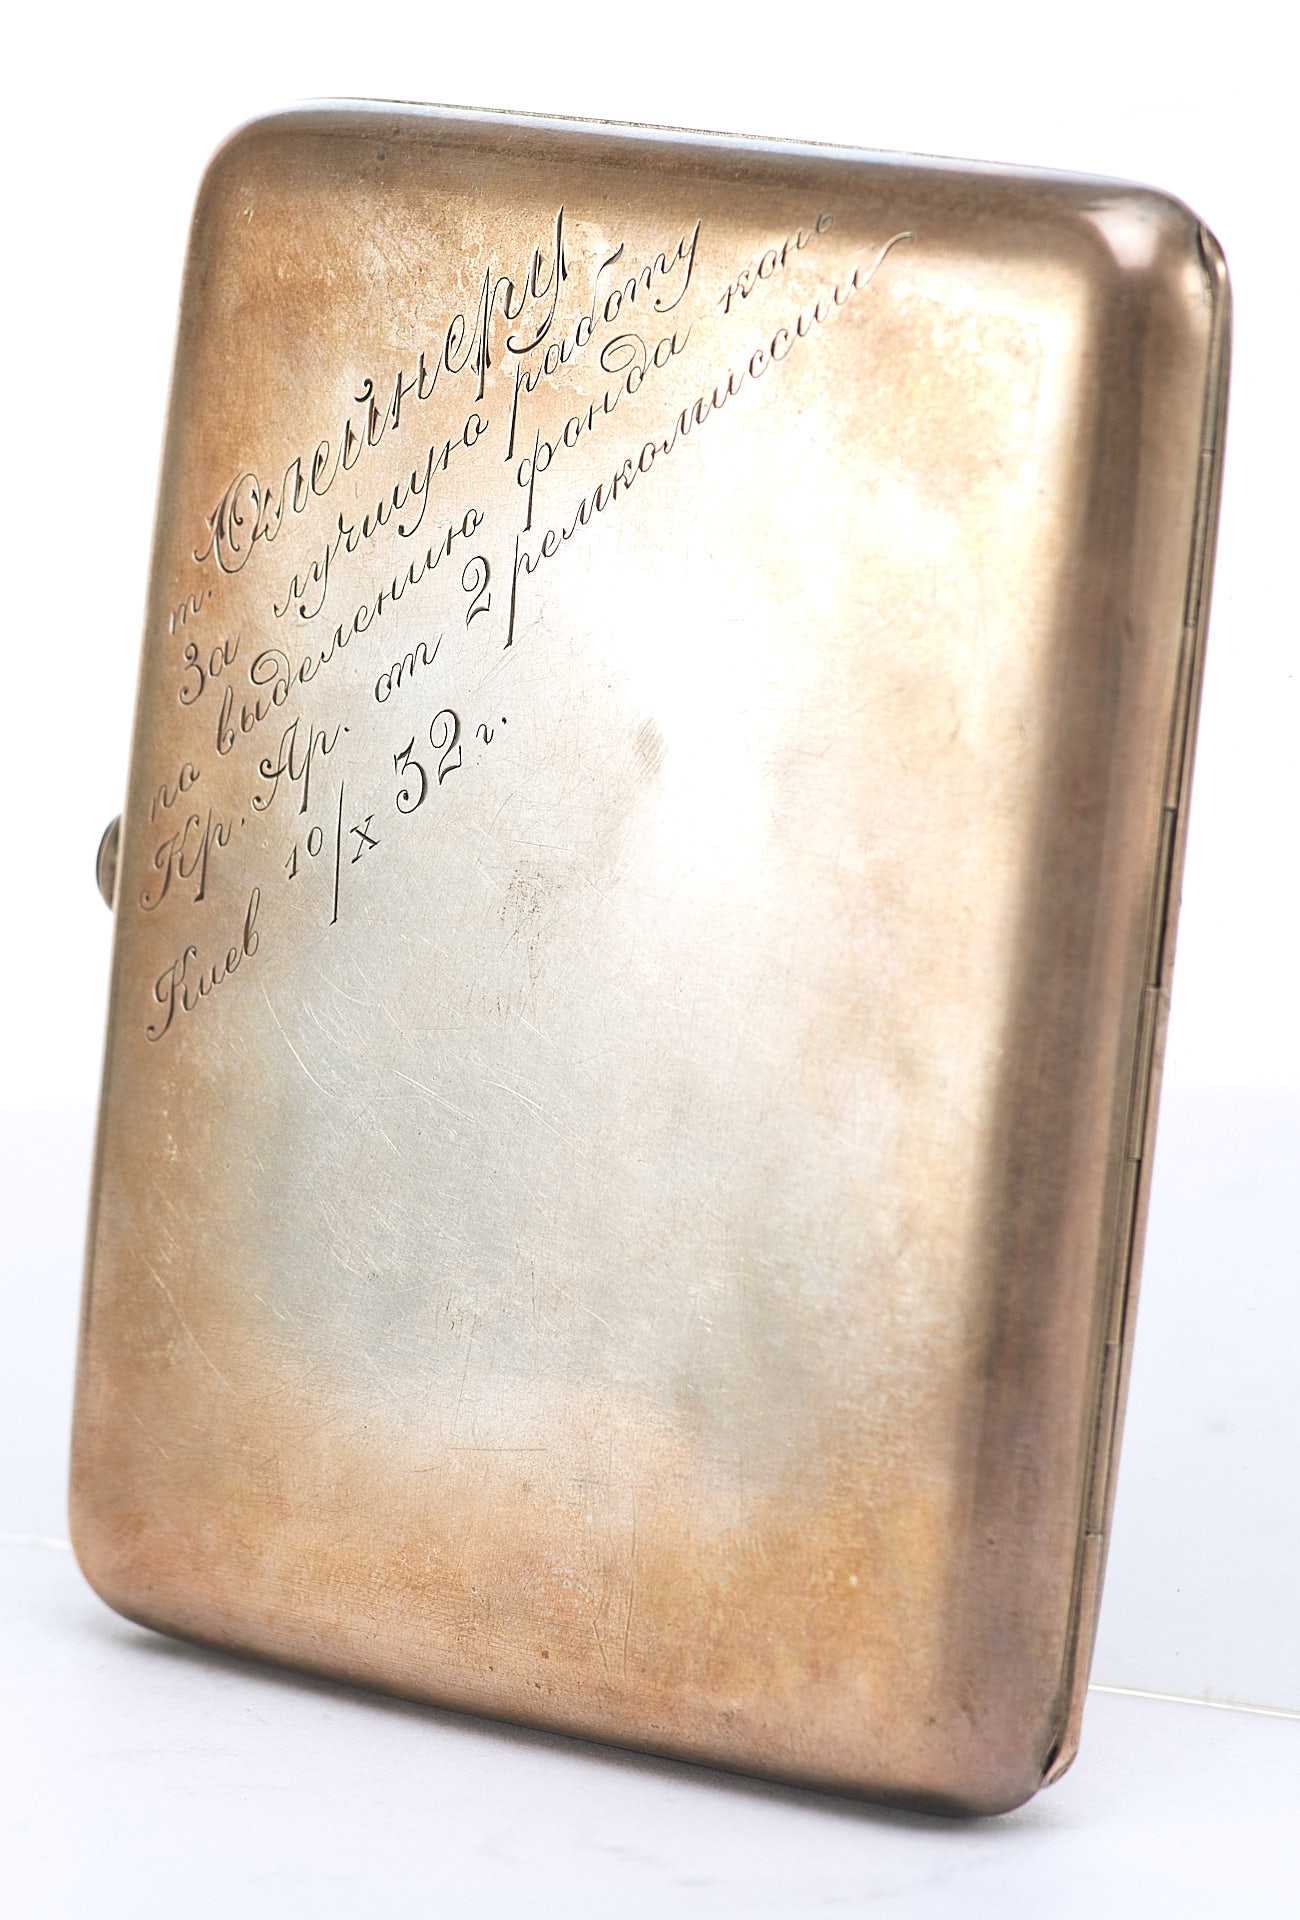 т. Олейнеру
За лучшую работу
по выделению фонда конь
Кр. Ар. от 2 ремкомиссии
Киев 10/X 32 г.